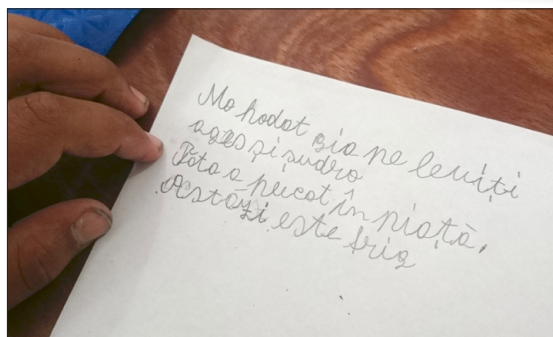 Mo hodot zio pe leuiți
ages și sudro
Tota a plecat în piață,
Astăzi este frig